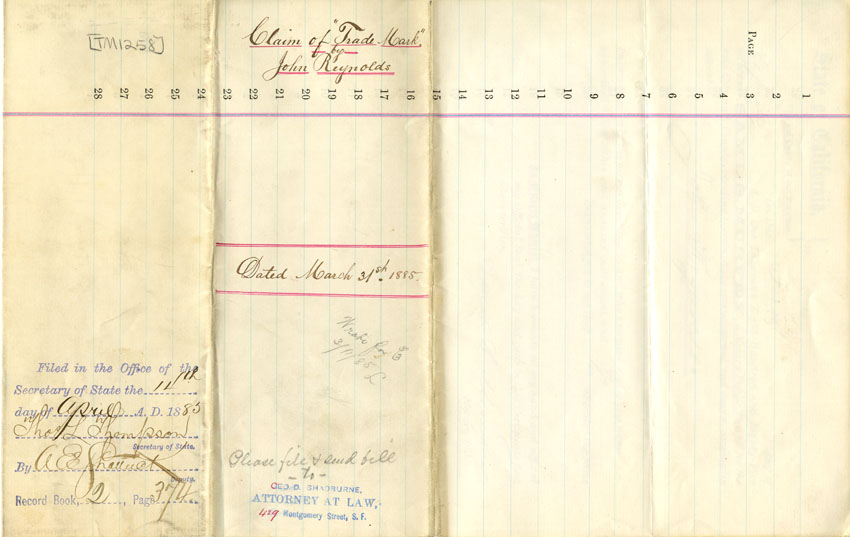 [TM1258]
Claim of "Trade Mark"
by
John Reynolds
PAGE
1
2
3
4
5
6
7
8
9
10
11
12
13
14
15
16
17
18
19
20
21
22
23
24
25
26
27
28
Dated March 31st 1885.
Filed in the Office of the
Secretary of State the 11th
day of April A. D. 1885
Thos L Thompson
Secretary of State.
By A E
Deputy.
Record Book, 2, Page 374
Please file & send bill
- To -
GEO. D. SHADBURNE,
ATTORNEY AT LAW,
429 Montgomery Street, S. F.